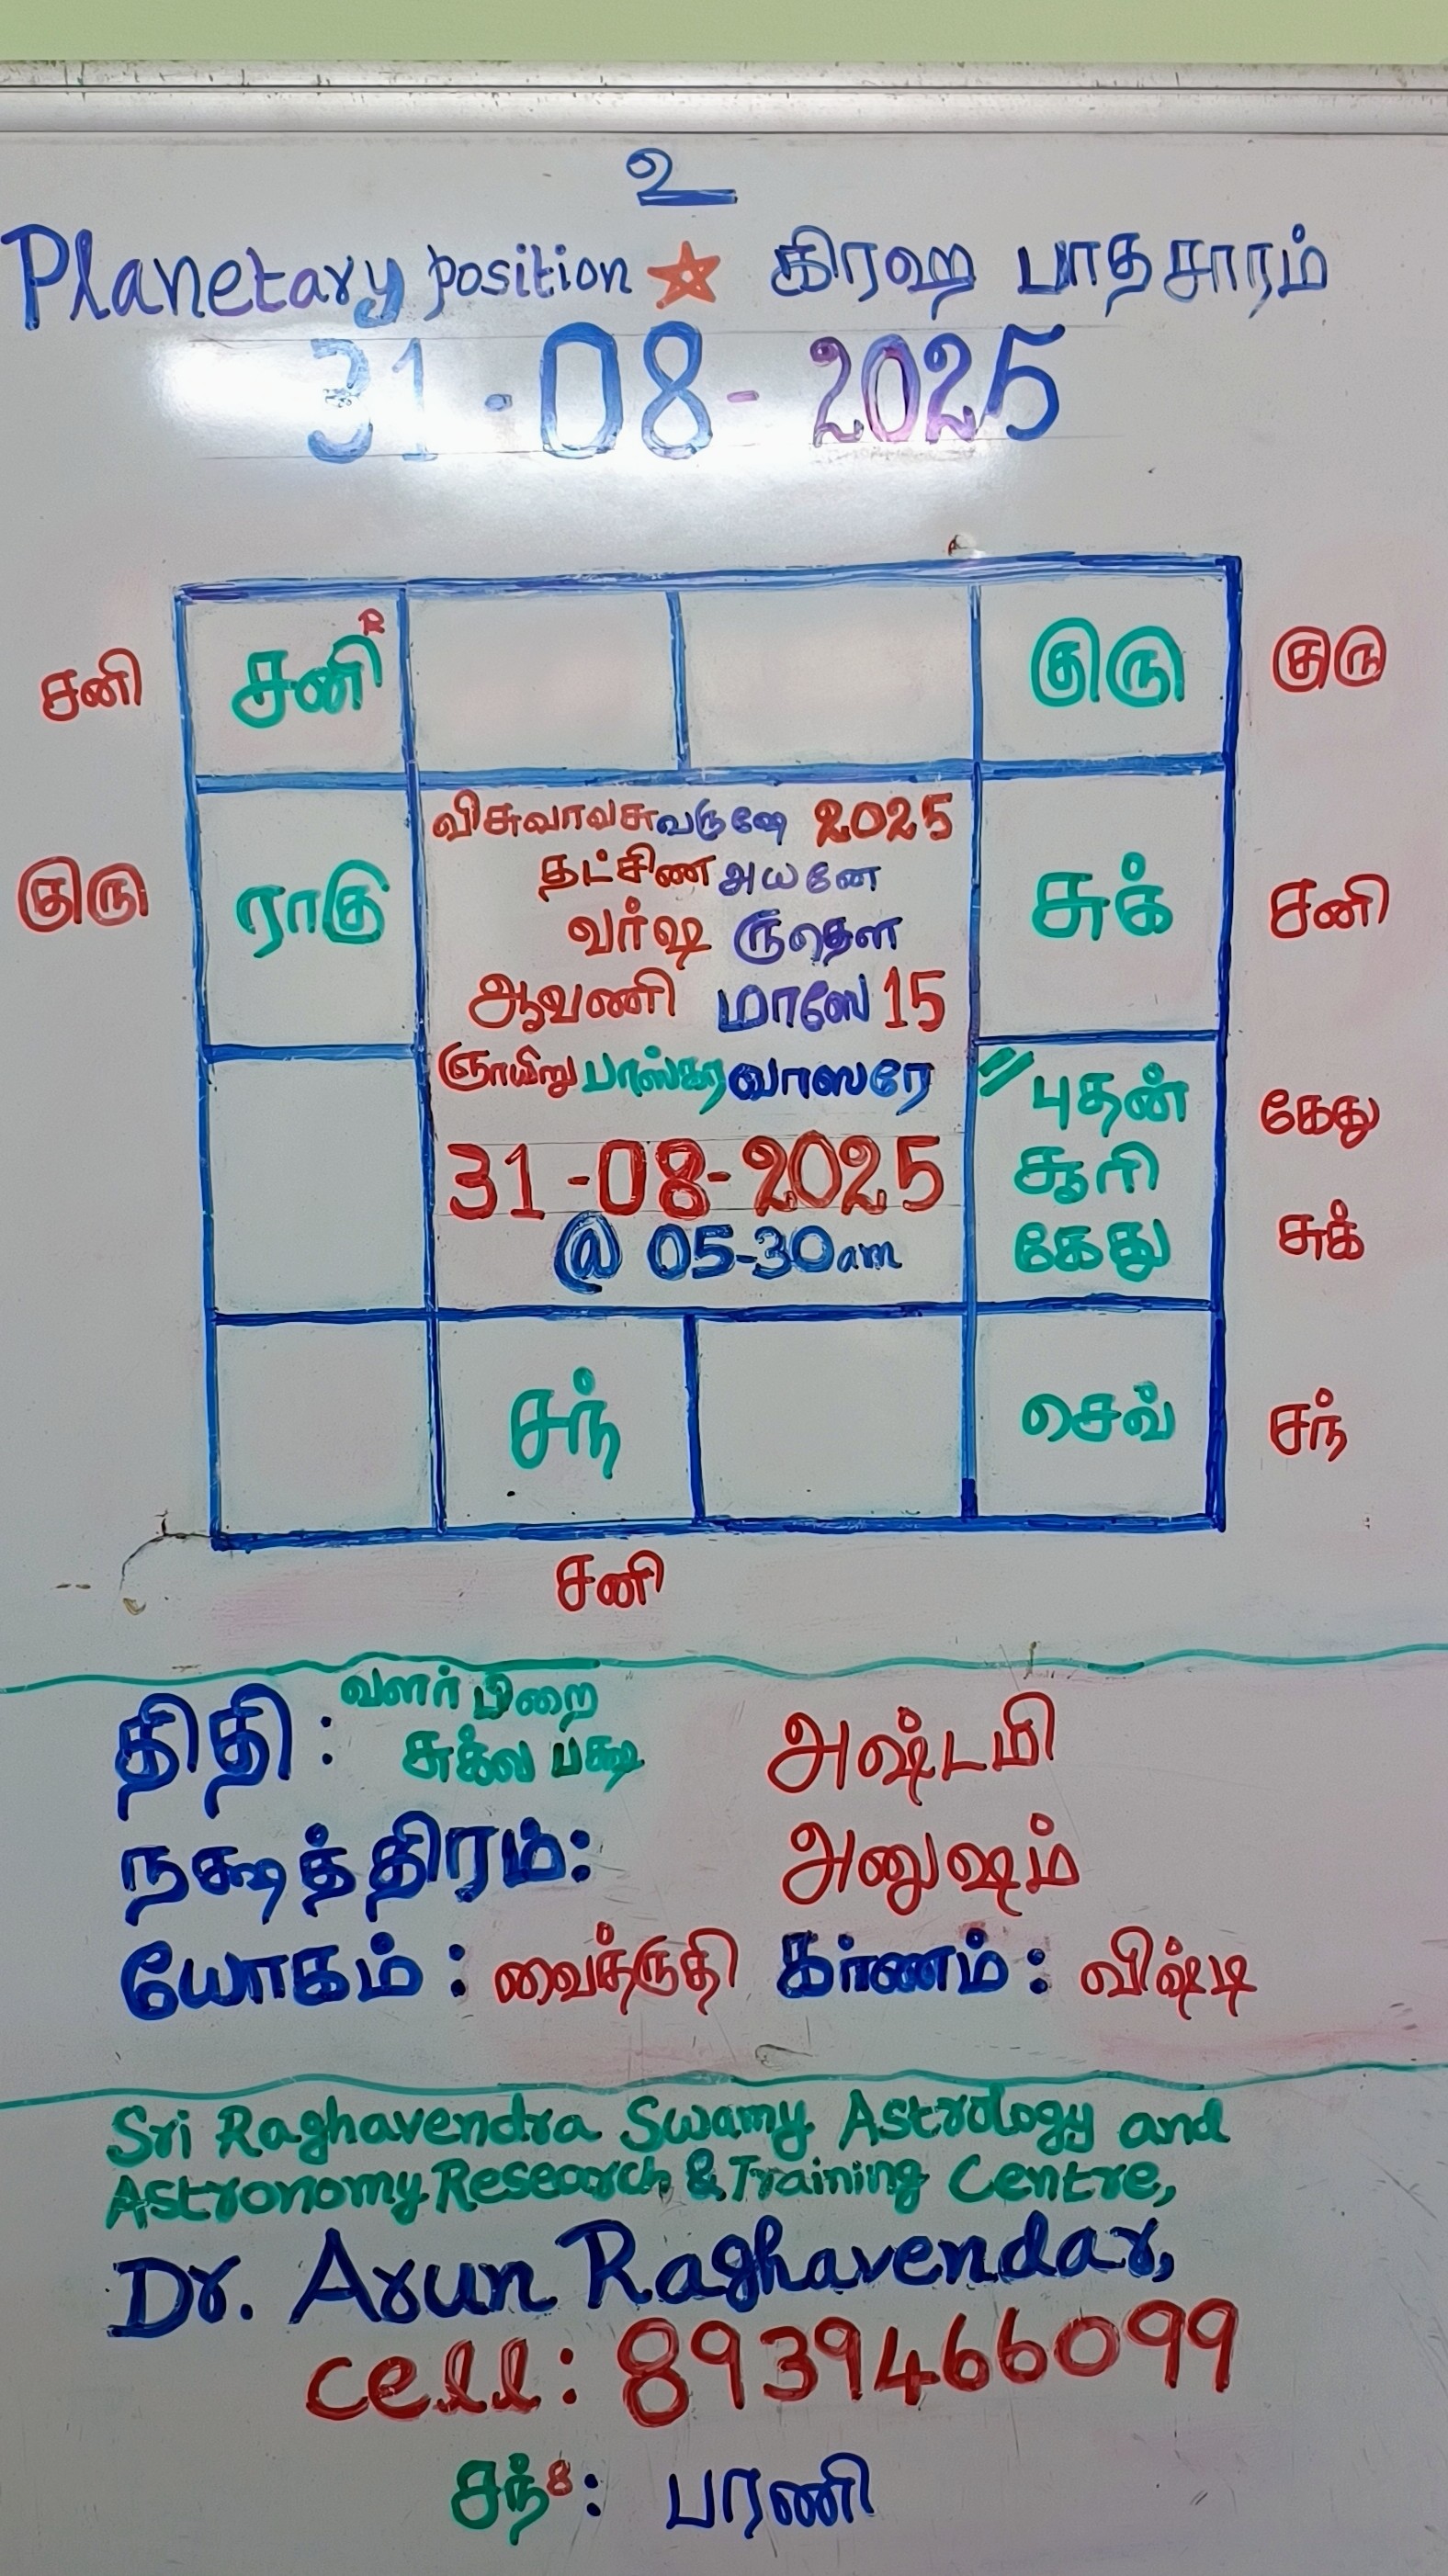 உ
Planetary position ☆ கிரஹ பாதசாரம்
31-08-2025
சனி சனி R குரு குரு
விசுவாவசுவருஷே 2025
தட்சிண அயனே
குரு ராகு வர்ஷ ருதௌ சுக் சனி
ஆவணி மாஸே 15
ஞாயிறு பாஸ்கர வாஸரே புதன் கேது
31-08-2025 சூரி
@ 05-30am கேது சுக்
சந் செவ் சந்
சனி
திதி: வளர்பிறை
சுக்ல பக்ஷ அஷ்டமி
நக்ஷத்திரம்: அனுஷம்
யோகம்: வைத்ருதி கர்ணம்: விஷ்டி
Sri Raghavendra Swamy Astrology and
Astronomy Research & Training Centre,
Dr. Arun Raghavendar,
cell: 8939466099
சந்8: பரணி